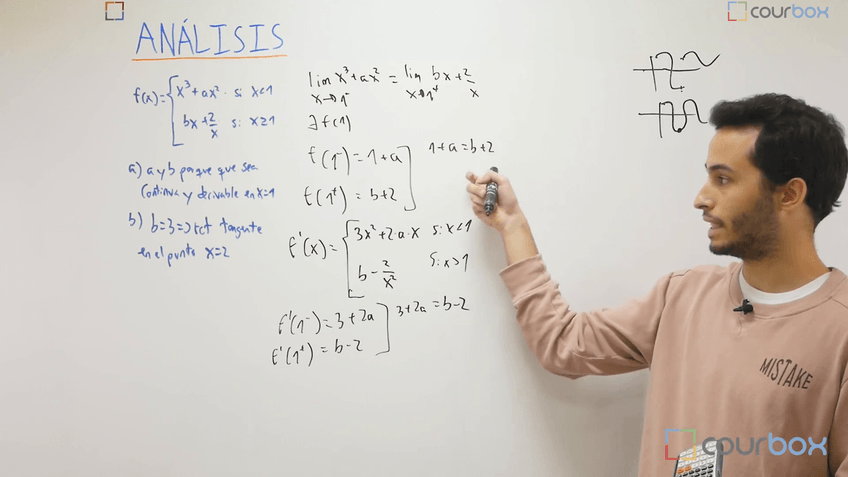 courbox
ANÁLISIS
f(x)= { x³+ax² si x<1
bx+2/x si x≥1
a) a y b porque que sea
continua y derivable en x=1
b) b=3 => rct tangente
en el punto x=2
lim x→1⁻ x³+ax² = lim x→1⁺ bx+2/x
∃ f(1)
f(1⁻)=1+a
f(1⁺)=b+2
1+a=b+2
f'(x)= { 3x²+2·a·x si x<1
b-2/x² si x>1
f'(1⁻)=3+2a
f'(1⁺)=b-2
3+2a=b-2
MISTAKE
courbox